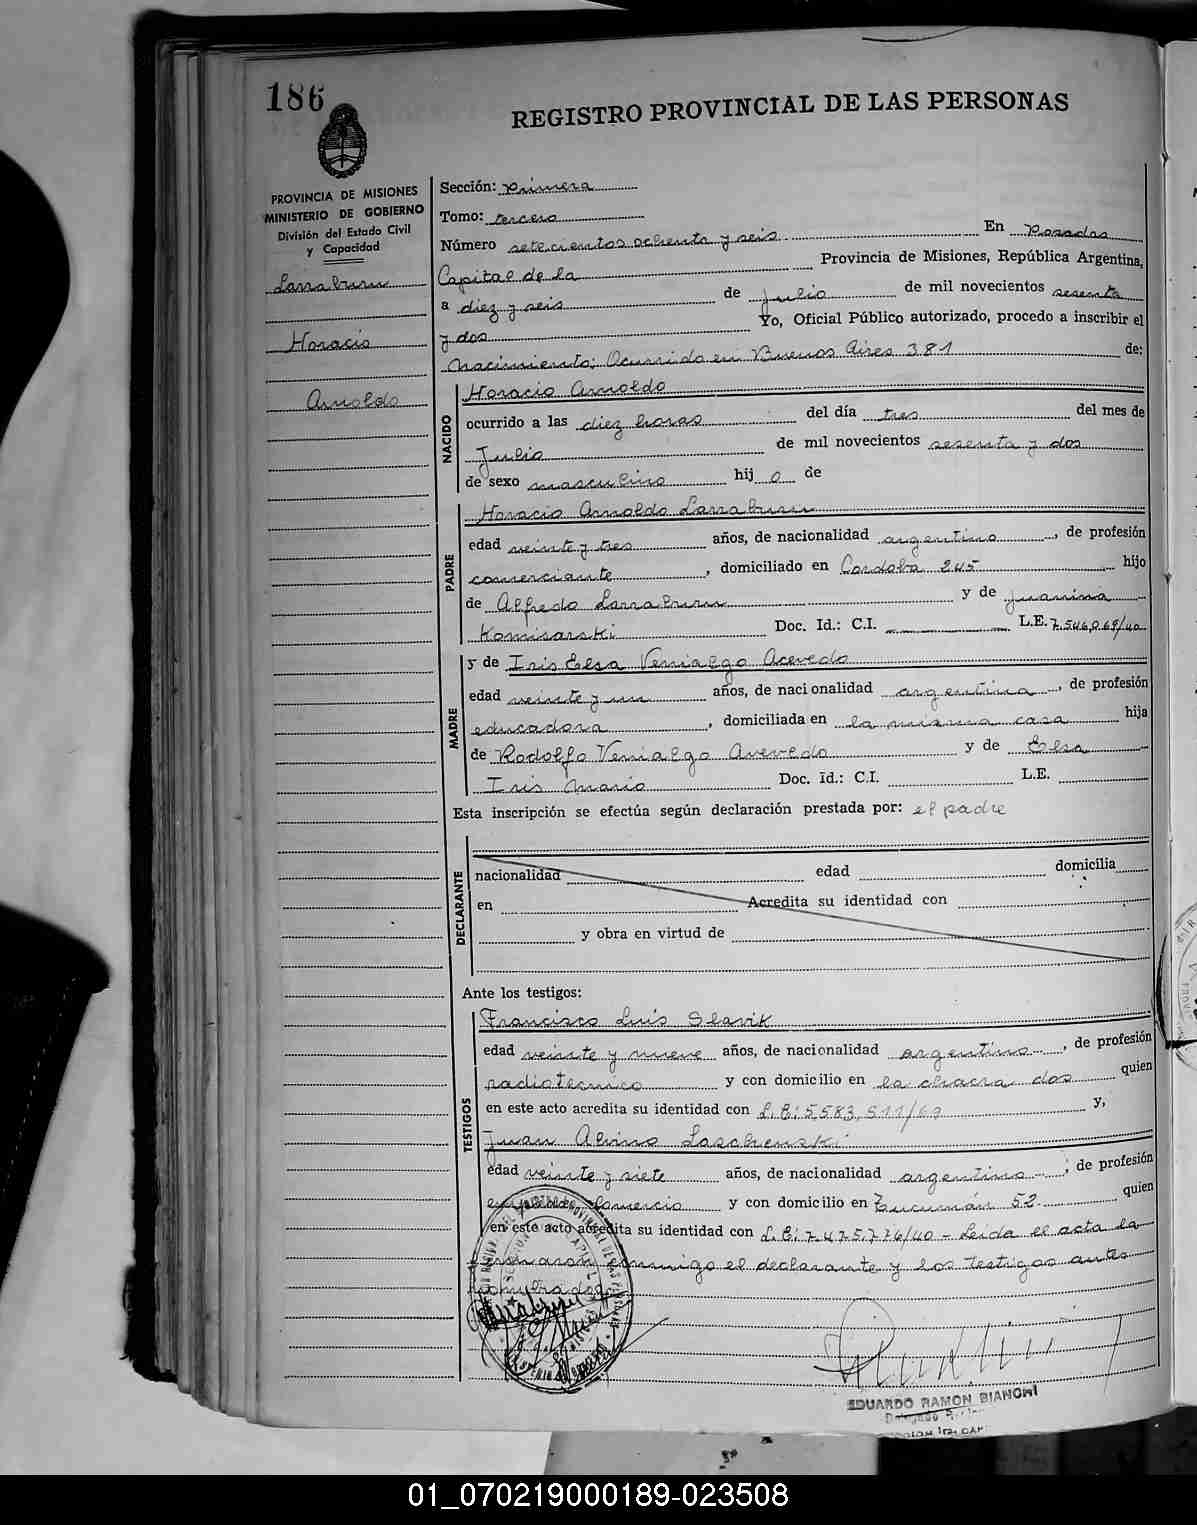 186
REGISTRO PROVINCIAL DE LAS PERSONAS
PROVINCIA DE MISIONES
MINISTERIO DE GOBIERNO
División del Estado Civil
y Capacidad
Larraburu
Horacio
Arnoldo
Sección: Primera
Tomo: tercero
Número setecientos ochenta y seis En Posadas
Capital de la Provincia de Misiones, República Argentina,
a diez y seis de Julio de mil novecientos sesenta
y dos Yo, Oficial Público autorizado, procedo a inscribir el
nacimiento; Ocurrido en Buenos Aires 381 de:
NACIDO
Horacio Arnoldo
ocurrido a las diez horas del día tres del mes de
Julio de mil novecientos sesenta y dos
de sexo masculino hij o de
PADRE
Horacio Arnoldo Larraburu
edad veinte y tres años, de nacionalidad argentino, de profesión
comerciante, domiciliado en Cordoba 245 hijo
de Alfredo Larraburu y de Juanina
Komisarski Doc. Id.: C.I. L.E. 7.546.069/40
MADRE
y de Iris Elsa Venialgo Acevedo
edad veinte y un años, de nacionalidad argentina, de profesión
educadora, domiciliada en la misma casa hija
de Rodolfo Venialgo Avevedo y de Elsa
Iris Mario Doc. Id.: C.I. L.E.
Esta inscripción se efectúa según declaración prestada por: el padre
DECLARANTE
nacionalidad edad domicilia
en Acredita su identidad con
y obra en virtud de
Ante los testigos:
TESTIGOS
Francisco Luis Slavik
edad veinte y nueve años, de nacionalidad argentino, de profesión
radiotecnico y con domicilio en la chacra dos quien
en este acto acredita su identidad con L.E: 5.583.511/60 y,
Juan Alvino Laschenski
edad veinte y siete años, de nacionalidad argentino; de profesión
comercio y con domicilio en Tucumán 52 quien
en este acto acredita su identidad con L.E: 7.475.776/40 - Leida el acta la
firmaron conmigo el declarante y los testigos antes
nombrados
EDUARDO RAMON BIANCHI
01_070219000189-023508